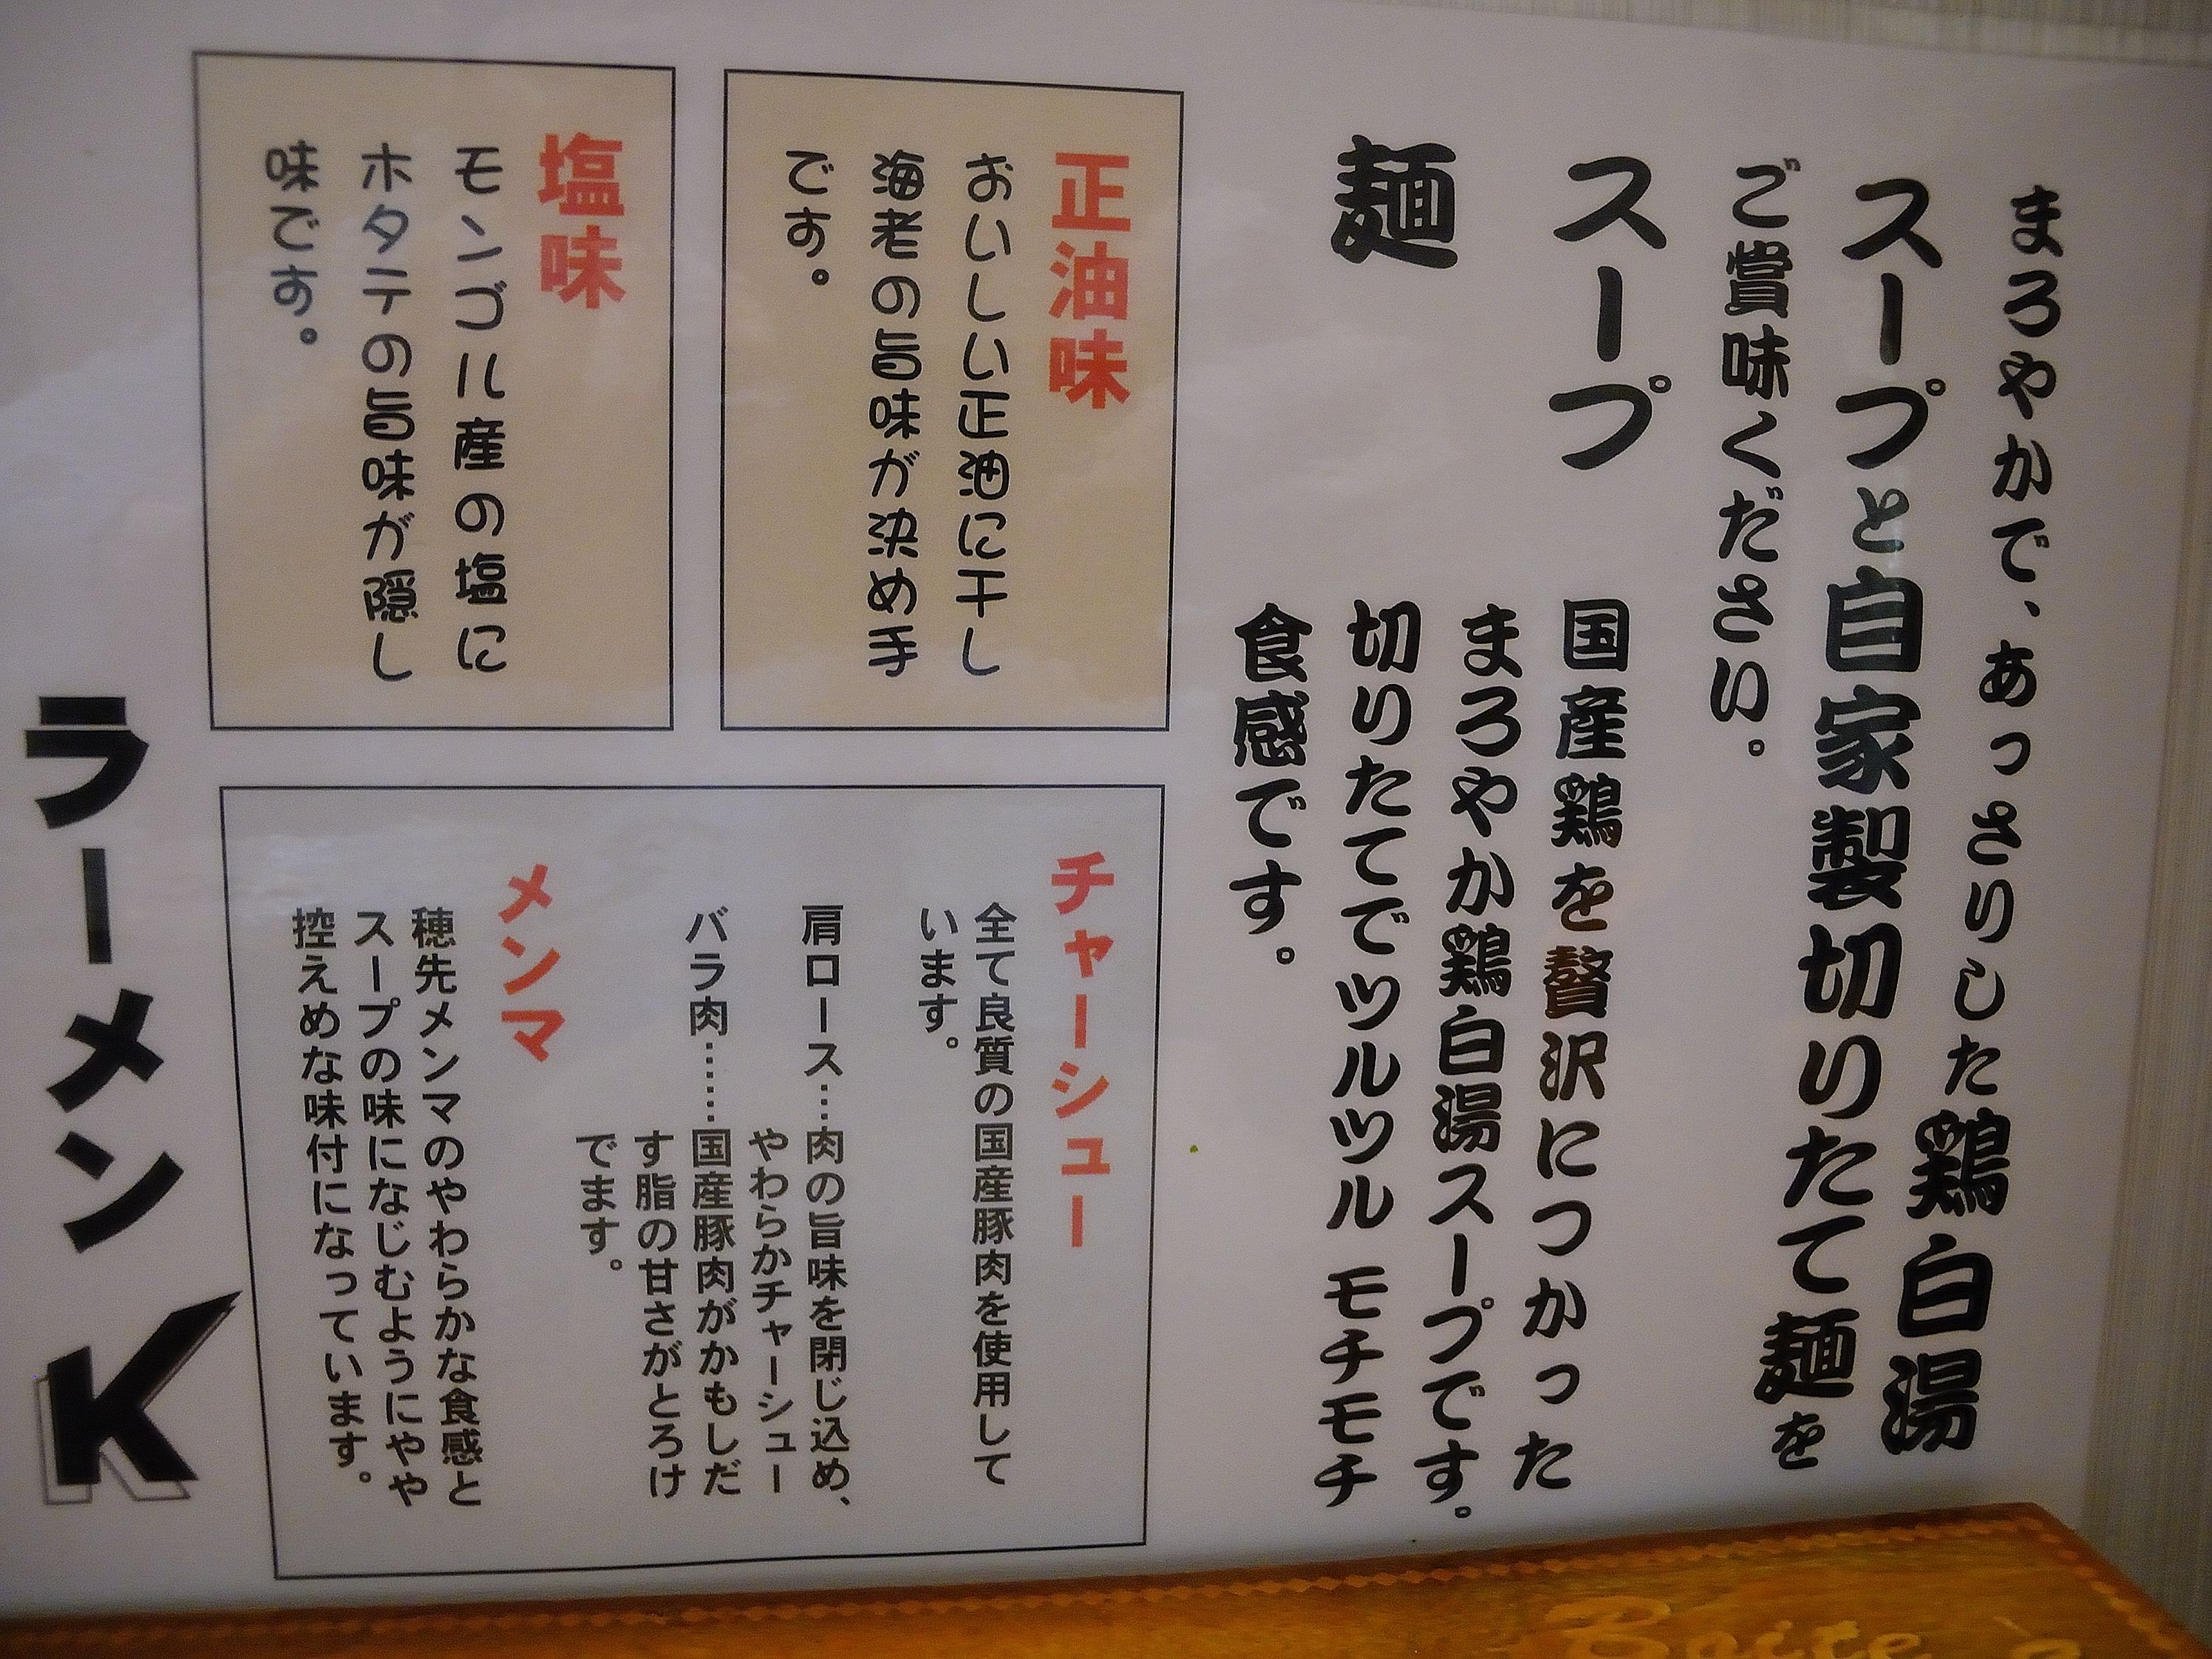 まろやかで、あっさりした鶏白湯
スープと自家製切りたて麺を
ご賞味ください。
スープ
国産鶏を贅沢につかった
まろやか鶏白湯スープです。
麺
切りたてでツルツル モチモチ
食感です。
正油味
おいしい正油に干し
海老の旨味が決め手
です。
塩味
モンゴル産の塩に
ホタテの旨味が隠し
味です。
チャーシュー
全て良質の国産豚肉を使用して
います。
肩ロース…肉の旨味を閉じ込め、
やわらかチャーシュー
バラ肉……国産豚肉がかもしだ
す脂の甘さがとろけ
でます。
メンマ
穂先メンマのやわらかな食感と
スープの味になじむようにやや
控えめな味付になっています。
ラーメンK